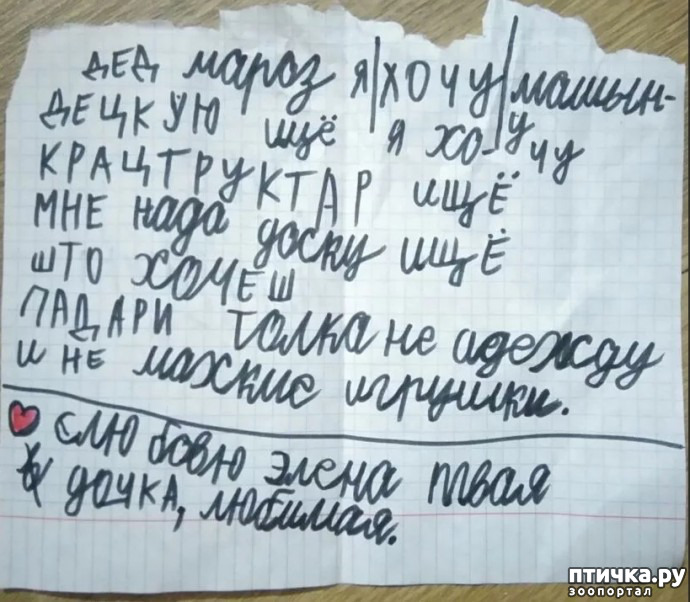 ДЕД мароз я|хочу|машын-
ДЕЦКУЮ ищё я хо-учу
КРАЦТРУКТАР ищЁ
МНЕ нада доску ищЁ
што хочеш
ПАДАРИ толка не адежду
и не махкие игрушки.
слю бовю элена твая
дочка, любимая.
птичка.ру
зоопортал